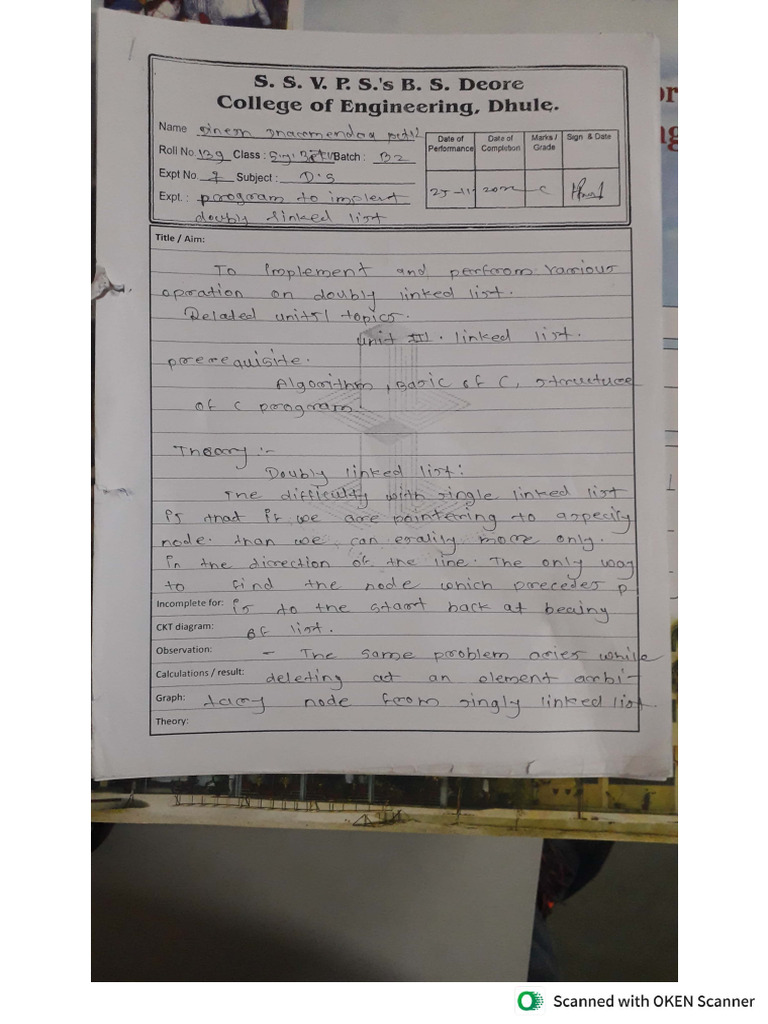 S. S. V. P. S.'s B. S. Deore
College of Engineering, Dhule.
Name
Roll No. 139 Class : Batch : B2
Expt No. 7 Subject : D.S
Expt. : program to implent
doubly linked list
Date of Performance Date of Completion Marks / Grade Sign & Date
25-11 2022 C
Title / Aim:
To Implement and perfrom various
opration on doubly linked list.
Related units/ topics.
unit III. linked list.
prerequisite.
Algorithm, Basic of C, structure
of C program.
Theory :-
Doubly linked list:
The difficulty with single linked list
is that if we are pointering to aspecify
node. than we can esality move only.
in the direction of the line. The only way
to find the node which precedes p
Incomplete for: is to the start back at beaing
CKT diagram: of list.
Observation: - The same problem aries while
Calculations / result: deleting at an element arbi-
Graph: tary node from singly linked list.
Theory:
Scanned with OKEN Scanner